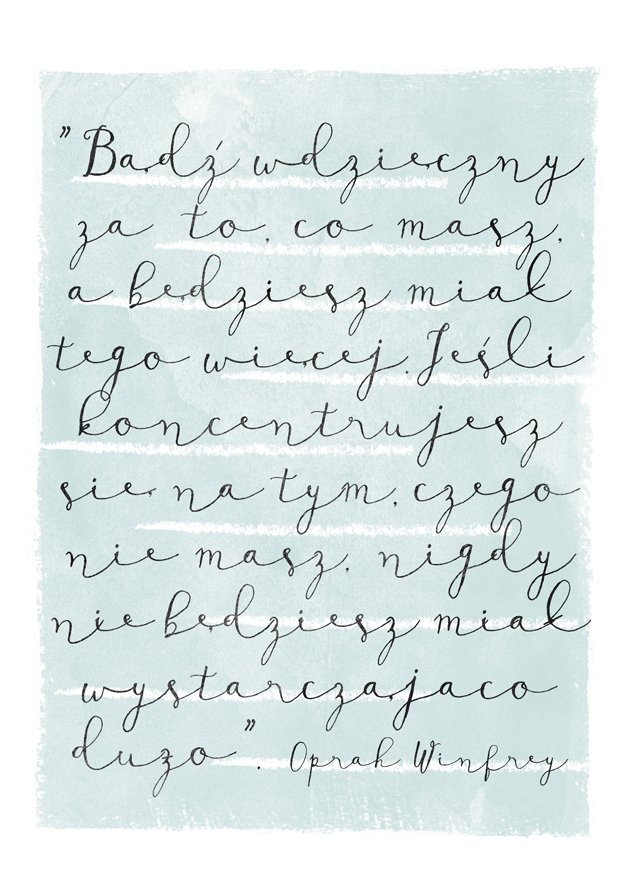 "Bądź wdzięczny
za to, co masz,
a będziesz miał
tego więcej. Jeśli
koncentrujesz
się na tym, czego
nie masz, nigdy
nie będziesz miał
wystarczająco
dużo". Oprah Winfrey